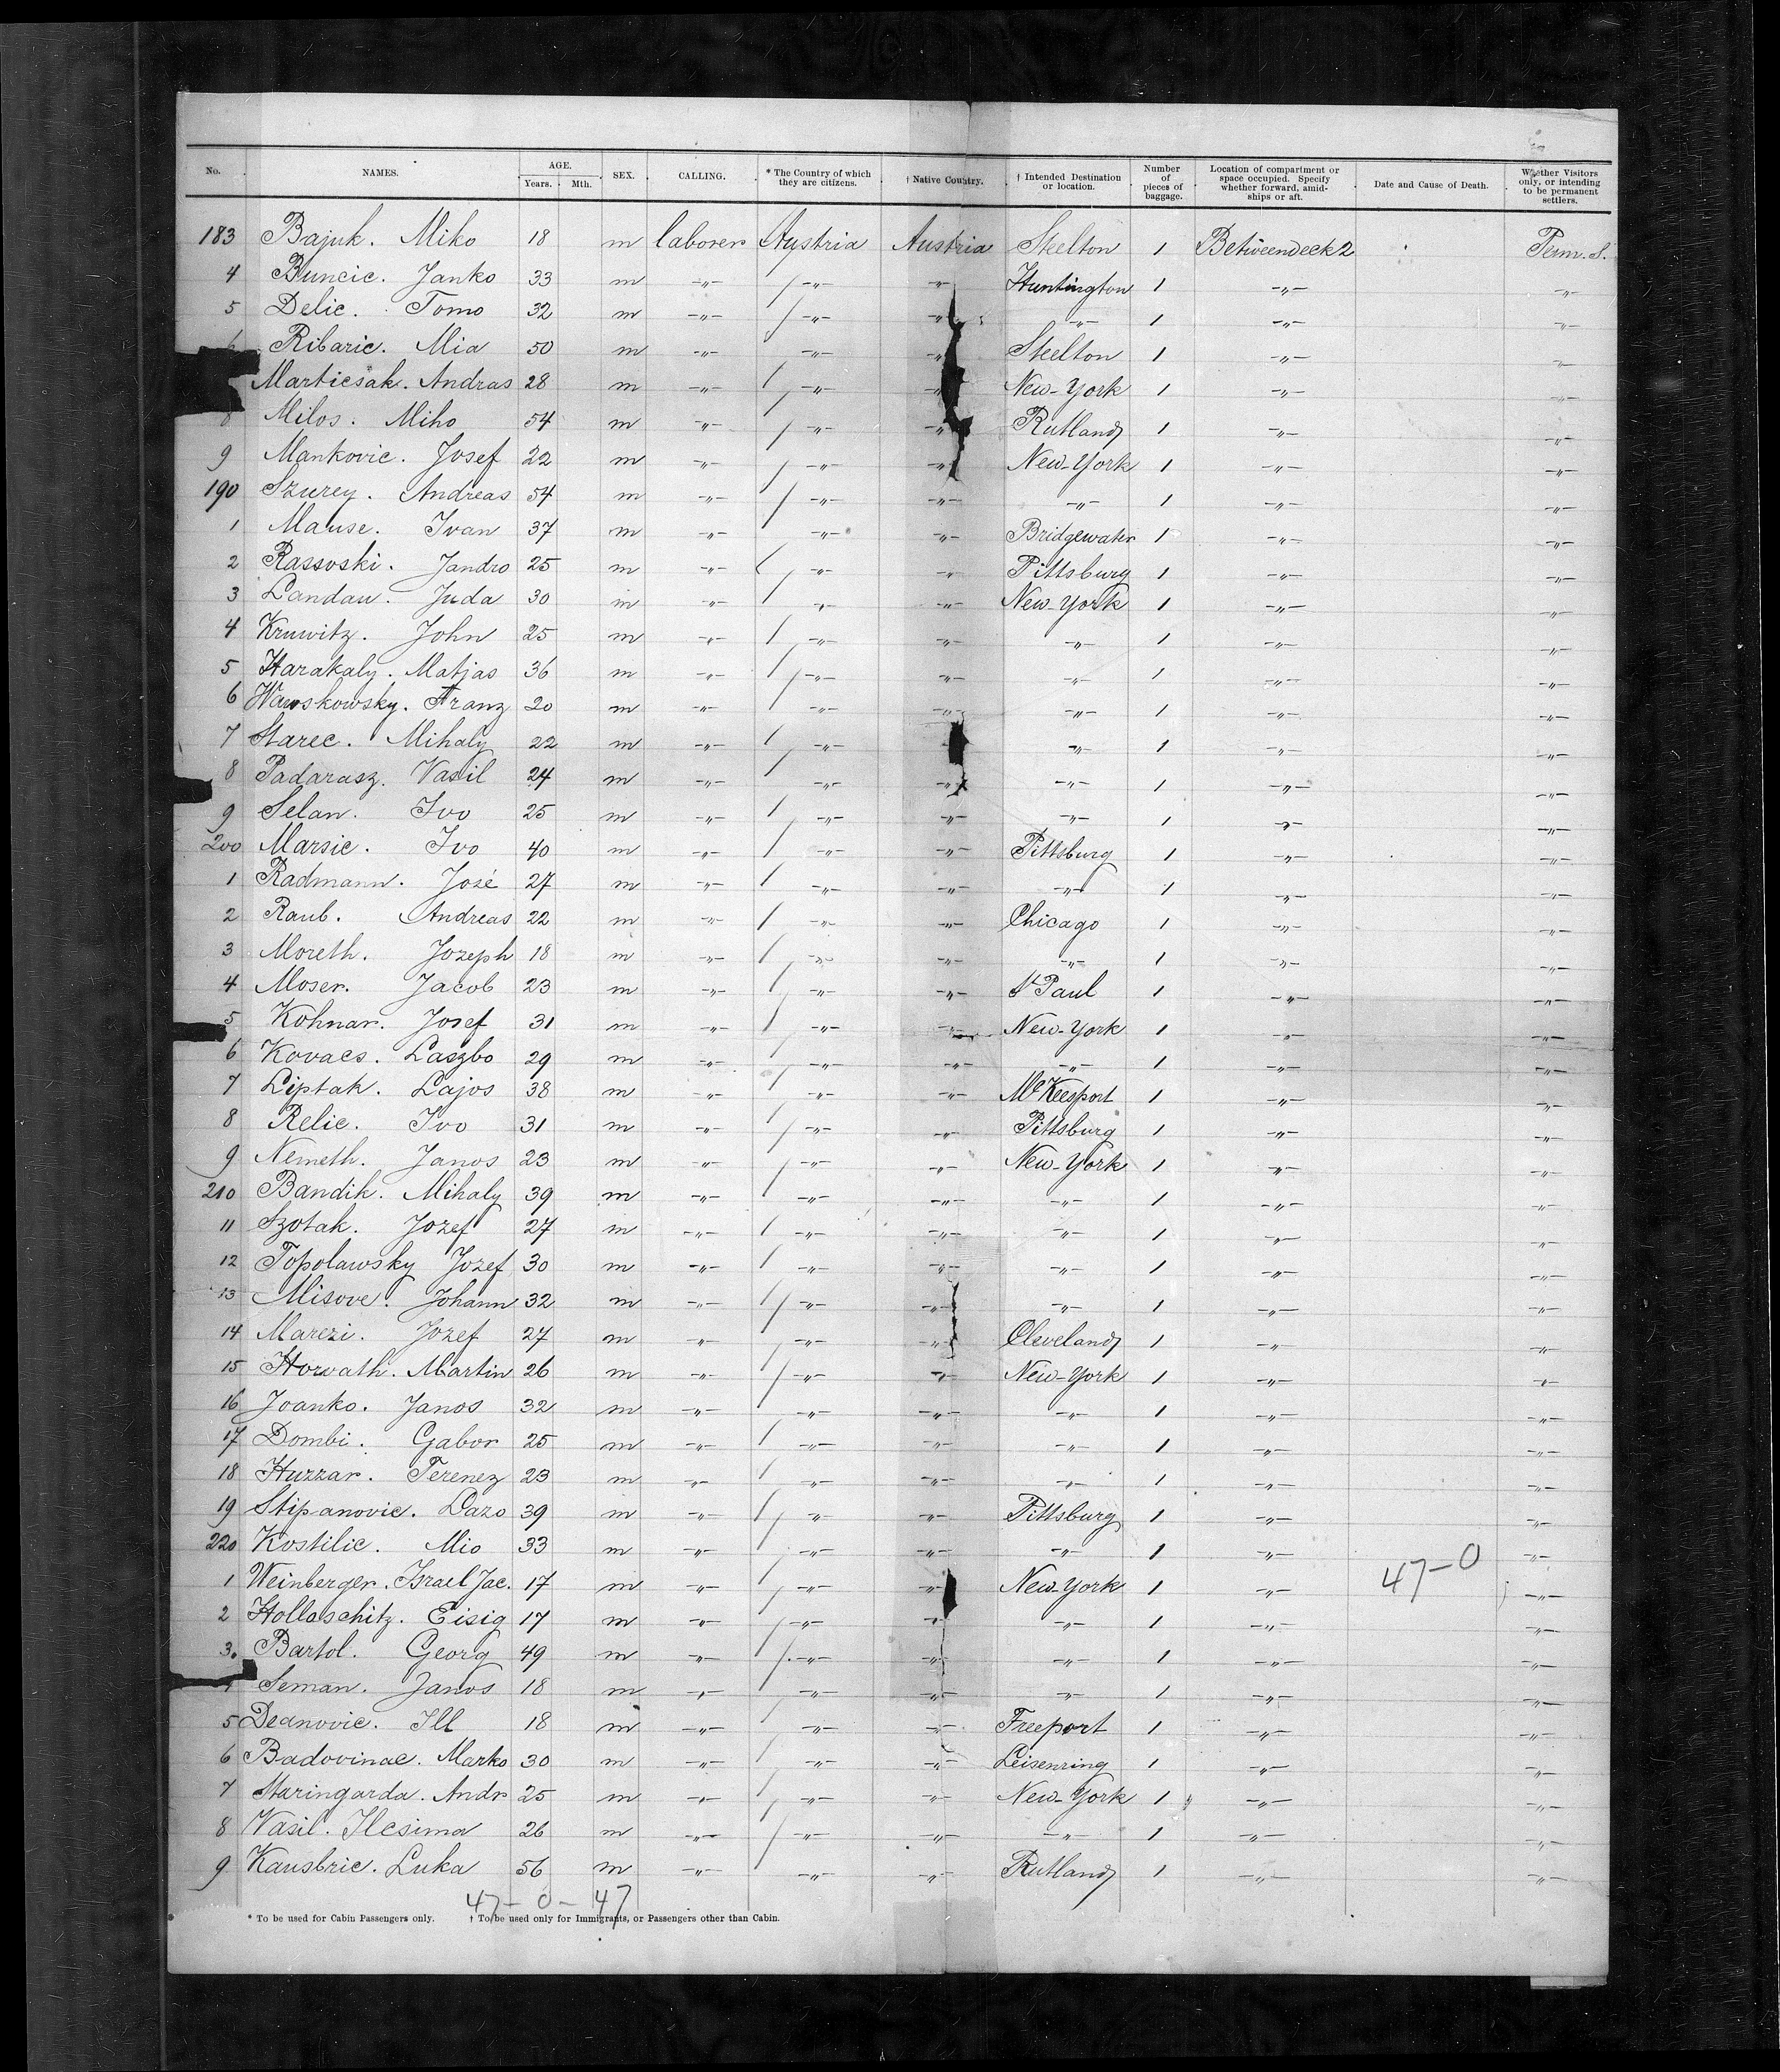 No. NAMES. AGE. Years. Mth. SEX. CALLING. * The Country of which they are citizens. † Native Country. † Intended Destination or location. Number of pieces of baggage. Location of compartment or space occupied. Specify whether forward, amidships or aft. Date and Cause of Death. Whether Visitors only, or intending to be permanent settlers.
183 Bajuk. Miko 18 m laborer Austria Austria Steelton 1 Betweendeck 2 Perm. S.
4 Buncic. Janko 33 m -"- -"- -"- Huntington 1 -"- -"-
5 Delic. Tomo 32 m -"- -"- -"- -"- 1 -"- -"-
6 Ribaric. Mia 50 m -"- -"- -"- Steelton 1 -"- -"-
Marticsak. Andras 28 m -"- -"- -"- New-York 1 -"- -"-
8 Milos. Miho 54 m -"- -"- -"- Rutland 1 -"- -"-
9 Mankovic. Josef 22 m -"- -"- -"- New-York 1 -"- -"-
190 Szurey. Andreas 54 m -"- -"- -"- -"- 1 -"- -"-
1 Mause. Ivan 37 m -"- -"- -"- Bridgewater 1 -"- -"-
2 Rassoski. Jandro 25 m -"- -"- -"- Pittsburg 1 -"- -"-
3 Landau. Juda 30 m -"- -"- -"- New-York 1 -"- -"-
4 Kruwitz. John 25 m -"- -"- -"- -"- 1 -"- -"-
5 Harakaly. Matjas 36 m -"- -"- -"- -"- 1 -"- -"-
6 Wawskowsky. Franz 20 m -"- -"- -"- -"- 1 -"- -"-
7 Starec. Mihaly 22 m -"- -"- -"- 1 -"- -"-
8 Padarasz. Vasil 24 m -"- -"- -"- -"- 1 -"- -"-
9 Selan. Ivo 25 m -"- -"- -"- -"- 1 -"- -"-
200 Marsic. Ivo 40 m -"- -"- -"- Pittsburg 1 -"- -"-
1 Radmann. José 27 m -"- -"- -"- -"- 1 -"- -"-
2 Raub. Andreas 22 m -"- -"- -"- Chicago 1 -"- -"-
3 Moreth. Jozeph 18 m -"- -"- -"- -"- 1 -"- -"-
4 Moser. Jacob 23 m -"- -"- -"- St Paul 1 -"- -"-
5 Kohnar. Josef 31 m -"- -"- -"- New-York 1 -"- -"-
6 Kovacs. Laszbo 29 m -"- -"- -"- -"- 1 -"- -"-
7 Liptak. Lajos 38 m -"- -"- -"- McKeesport 1 -"- -"-
8 Relic. Ivo 31 m -"- -"- -"- Pittsburg 1 -"- -"-
9 Nemeth. Janos 23 m -"- -"- -"- New-York 1 -"- -"-
210 Bandik. Mihaly 39 m -"- -"- -"- -"- 1 -"- -"-
11 Szotak. Jozef 27 m -"- -"- -"- -"- 1 -"- -"-
12 Topolawsky Jozef 30 m -"- -"- -"- -"- 1 -"- -"-
13 Misove. Johann 32 m -"- -"- -"- -"- 1 -"- -"-
14 Marezi. Jozef 27 m -"- -"- -"- Cleveland 1 -"- -"-
15 Horvath. Martin 26 m -"- -"- -"- New-York 1 -"- -"-
16 Joanko. Janos 32 m -"- -"- -"- -"- 1 -"- -"-
17 Dombi. Gabor 25 m -"- -"- -"- -"- 1 -"- -"-
18 Huzzar. Ferenez 23 m -"- -"- -"- -"- 1 -"- -"-
19 Stipanovic. Dazo 39 m -"- -"- -"- Pittsburg 1 -"- -"-
220 Kostilic. Mio 33 m -"- -"- -"- -"- 1 -"- -"-
1 Weinberger. Israel Jac. 17 m -"- -"- -"- New-York 1 -"- 47-0 -"-
2 Hollaschitz. Eisig 17 m -"- -"- -"- -"- 1 -"- -"-
3. Bartol. Georg 49 m -"- -"- -"- -"- 1 -"- -"-
Seman. Janos 18 m -"- -"- -"- -"- 1 -"- -"-
5 Deanovic. Ill 18 m -"- -"- -"- Freeport 1 -"- -"-
6 Badovinac. Marko 30 m -"- -"- -"- Leisenring 1 -"- -"-
7 Staringarda. Andr 25 m -"- -"- -"- New-York 1 -"- -"-
8 Vasil. Ilesima 26 m -"- -"- -"- -"- 1 -"- -"-
9 Kausbric. Luka 56 m -"- -"- -"- Rutland 1 -"- -"-
47-0-47
* To be used for Cabin Passengers only. † To be used only for Immigrants, or Passengers other than Cabin.